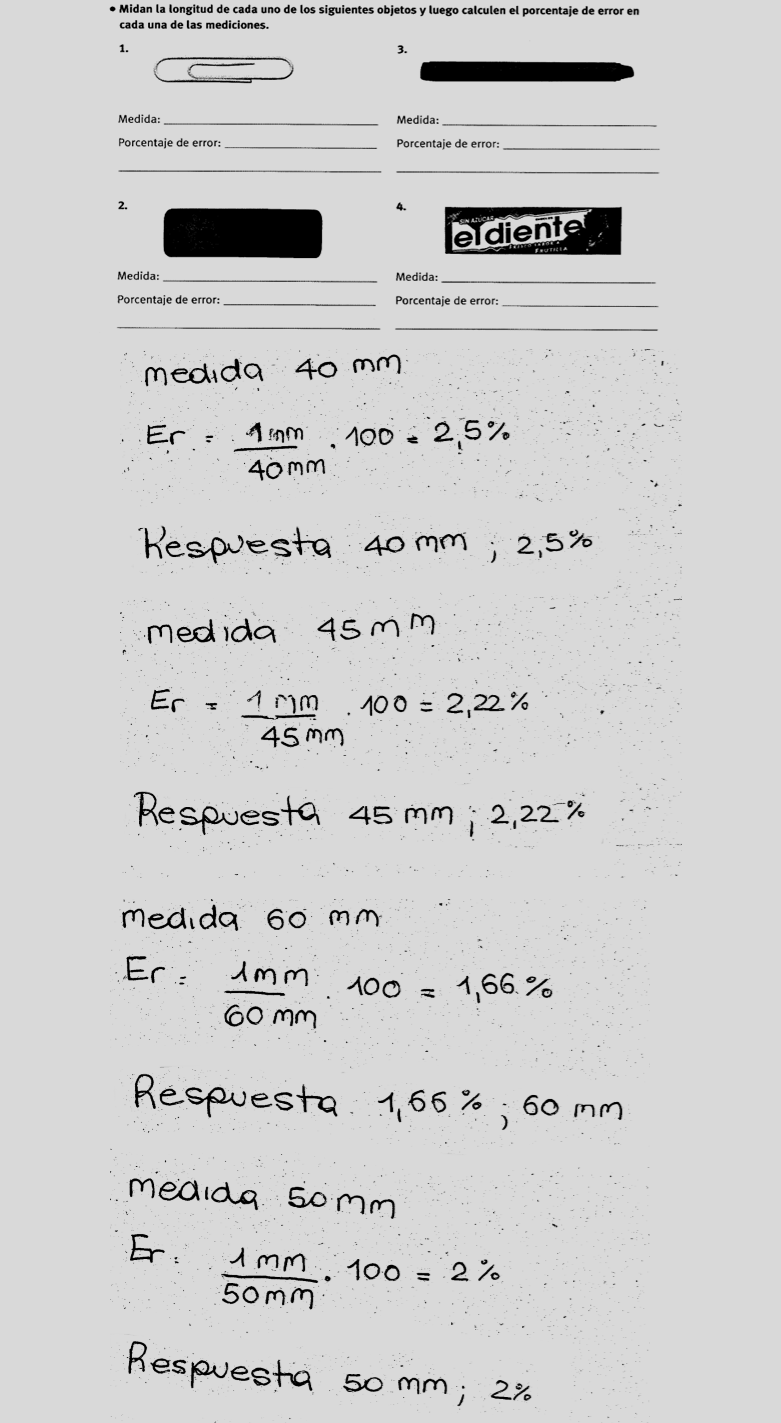 • Midan la longitud de cada uno de los siguientes objetos y luego calculen el porcentaje de error en
cada una de las mediciones.
1.
Medida:
Porcentaje de error:
3.
Medida:
Porcentaje de error:
2.
Medida:
Porcentaje de error:
4.
SIN AZÚCAR
el diente
FRUTILLA
Medida:
Porcentaje de error:
medida 40 mm
Er = 1mm/40mm . 100 = 2,5%
Respuesta 40 mm ; 2,5%
medida 45 mm
Er = 1 mm/45 mm . 100 = 2,22%
Respuesta 45 mm ; 2,22%
medida 60 mm
Er = 1mm/60 mm . 100 = 1,66%
Respuesta 1,66% ; 60 mm
medida 50 mm
Er = 1 mm/50 mm . 100 = 2%
Respuesta 50 mm ; 2%